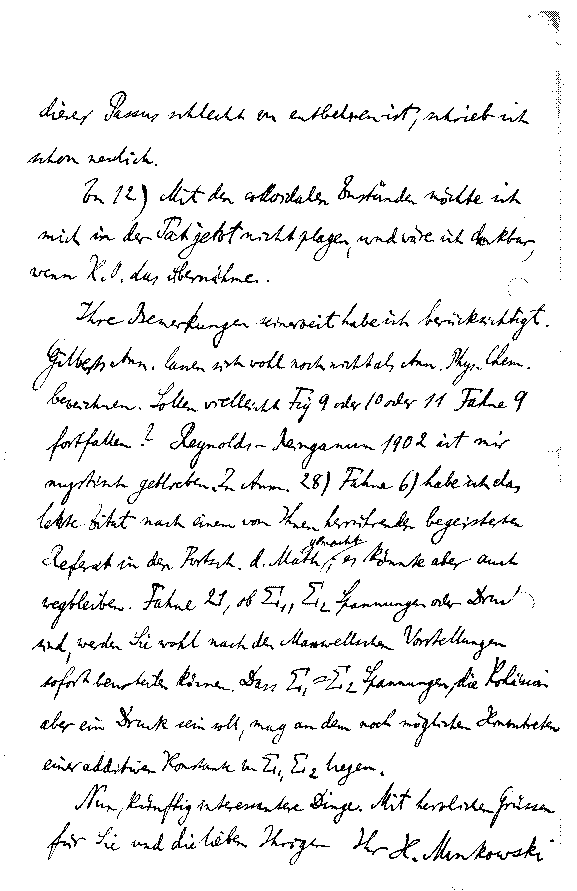 dieser Passus schlecht zu entbehren ist, schrieb ich
schon neulich.
Zu 12) Mit den colloidalen Zuständen möchte ich
mich in der Tat jetzt nicht plagen, und wäre ich dankbar,
wenn K. O. das übernähme.
Ihre Bemerkungen seinerzeit habe ich berücksichtigt.
Gilberts Ann. lassen sich wohl noch nicht als Ann. Phys. Chem.
bezeichnen. Sollen vielleicht Fig 9 oder 10 oder 11 Fahne 9
fortfallen? Reynolds- 1902 ist mir
mystisch geblieben. In Anm. 28) Fahne 6) habe ich das
letzte Citat nach einem von Ihnen herrührenden begeisterten
Referat in den Fortsch. d. Math. gemacht, es könnte aber auch
wegbleiben. Fahne 21, ob Σ₁, Σ₂ Spannungen oder Druck
sind, werden Sie wohl nach den Maxwellschen Vorstellungen
sofort beurteilen können. Dass Σ₁, Σ₂ Spannungen, die Kohäsion
aber ein Druck sein soll, mag an dem noch möglichen Hinzutreten
einer additiven Konstante zu Σ₁, Σ₂ liegen.
Nun, künftig interessantere Dinge. Mit herzlichen Grüssen
für Sie und die lieben Ihrigen Ihr H. Minkowski